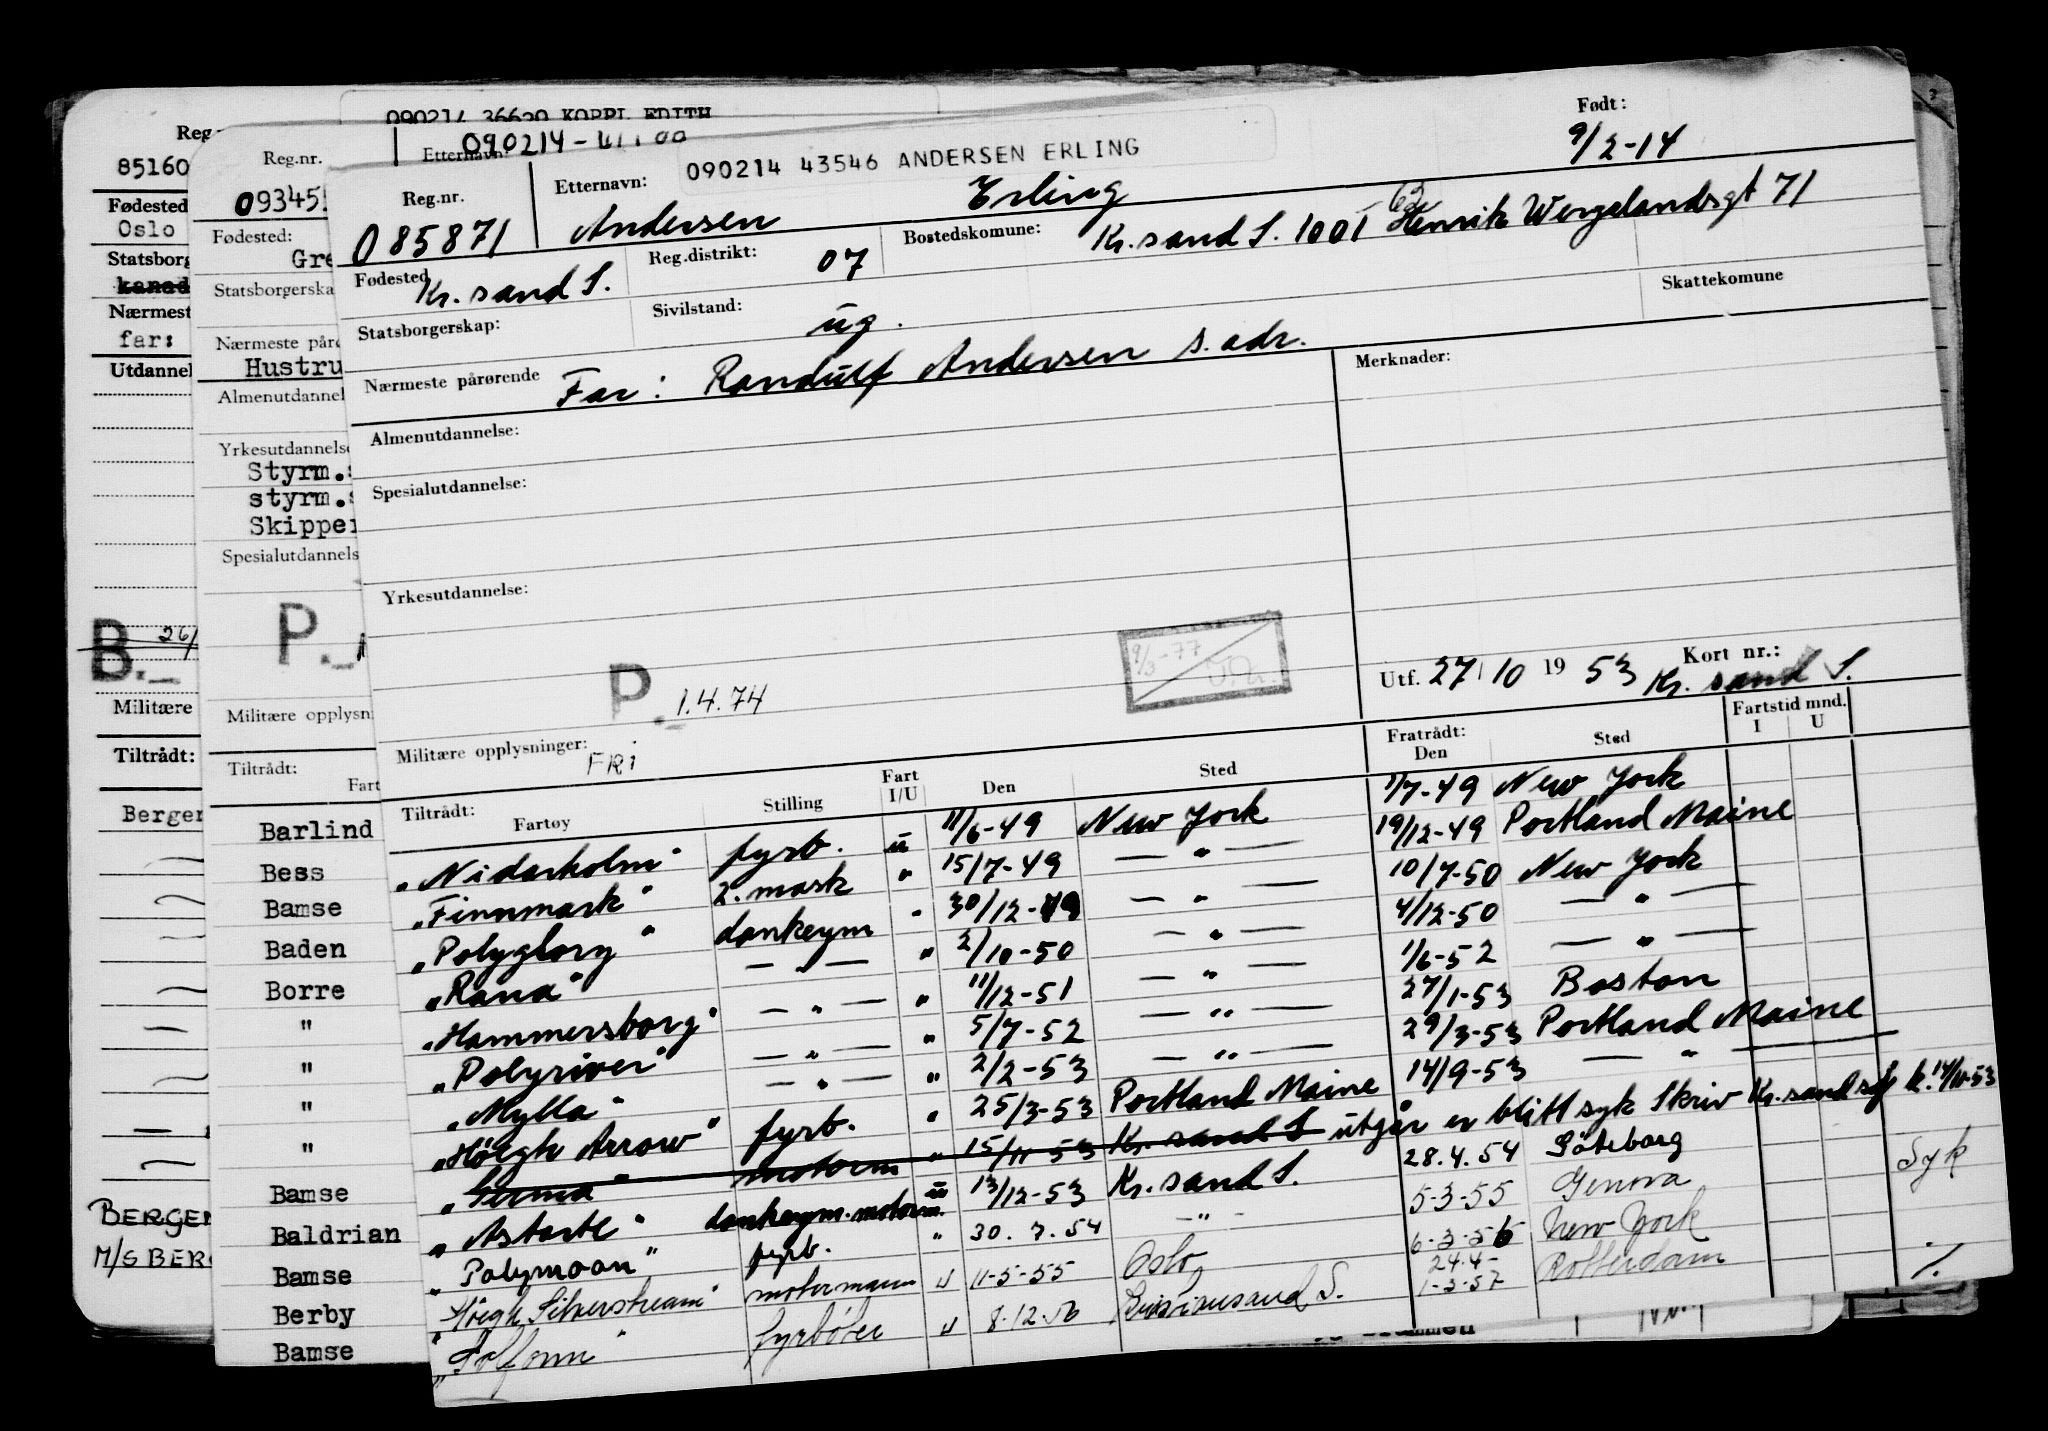 090214 36620 KOPPL EDITH
Reg.
85160
Fødested
Oslo
Statsborg
kanad
Nærmest
far:
Utdannel
B. 26/
Militære
Tiltrådt:
Berger
BERGEN
M/S BERG
Reg.nr.
Etternavn:
090214-
093455
Fødested:
Gre
Statsborgerska
Nærmeste pårø
Hustru
Almenutdannel
Yrkesutdannelse
Styrm.s
styrm.s
Skipper
Spesialutdannels
P.
Militære opplysn
Tiltrådt:
Fart
Barlind
Bess
Bamse
Baden
Borre
"
"
"
"
Bamse
Baldrian
Bamse
Berby
Bamse
Reg.nr. Etternavn: 090214 43546 ANDERSEN ERLING Født:
085871 Andersen Erling 9/2-14
Fødested Kr.sand S. Reg.distrikt: 07 Bostedskomune: Kr.sand S. 1001 Henrik Wergelandsgt 71
Statsborgerskap: Sivilstand: ug. Skattekomune
Nærmeste pårørende Far: Randulf Andersen s. adr. Merknader:
Almenutdannelse:
Spesialutdannelse:
Yrkesutdannelse:
P. 1.4.74 9/3-77
Utf. 27/10 1953 Kort nr.: Kr. sand S.
Militære opplysninger: FRi
Tiltrådt: Fartøy Stilling Fart I/U Den Sted Fratrådt: Den Sted Fartstid mnd. I U
"Nidarholm" fyrb. u 11/6-49 New York 1/7-49 New York
"Finnmark" 2. mask " 15/7-49 — " — 19/12-49 Portland Maine
"Polyglory" donkeym " 30/12-49 — " — 10/7-50 New York
"Rana" — " — " 2/10-50 — " — 4/12-50 — " —
"Hammersborg" — " — " 11/12-51 — " — 1/6-52 — " —
"Polyriver" — " — " 5/7-52 — " — 27/1-53 Boston
"Mylla" — " — " 2/2-53 — " — 29/3-53 Portland Maine
"Höegh Arrow" fyrb. " 25/3-53 Portland Maine 14/9-53 — " —
"Germa" motorm " 15/11-53 Kr. sand S utgår er blitt syk Skriv Kr.sand sjk k. 14/11-53
"Astarte" donkeym. motorm. u 13/12-53 Kr. sand S. 28.4.54 Göteborg
"Polymoon" fyrb. " 30.7.54 — " — 5-3-55 Genova Syk
"Höegh Silverstream" motormann u 11-5-55 Oslo 6-3-56 New York
24.4-
"Solfonn" fyrbøter u 8.12.56 Kristiansand S. 1-3-57 Rotterdam ./.